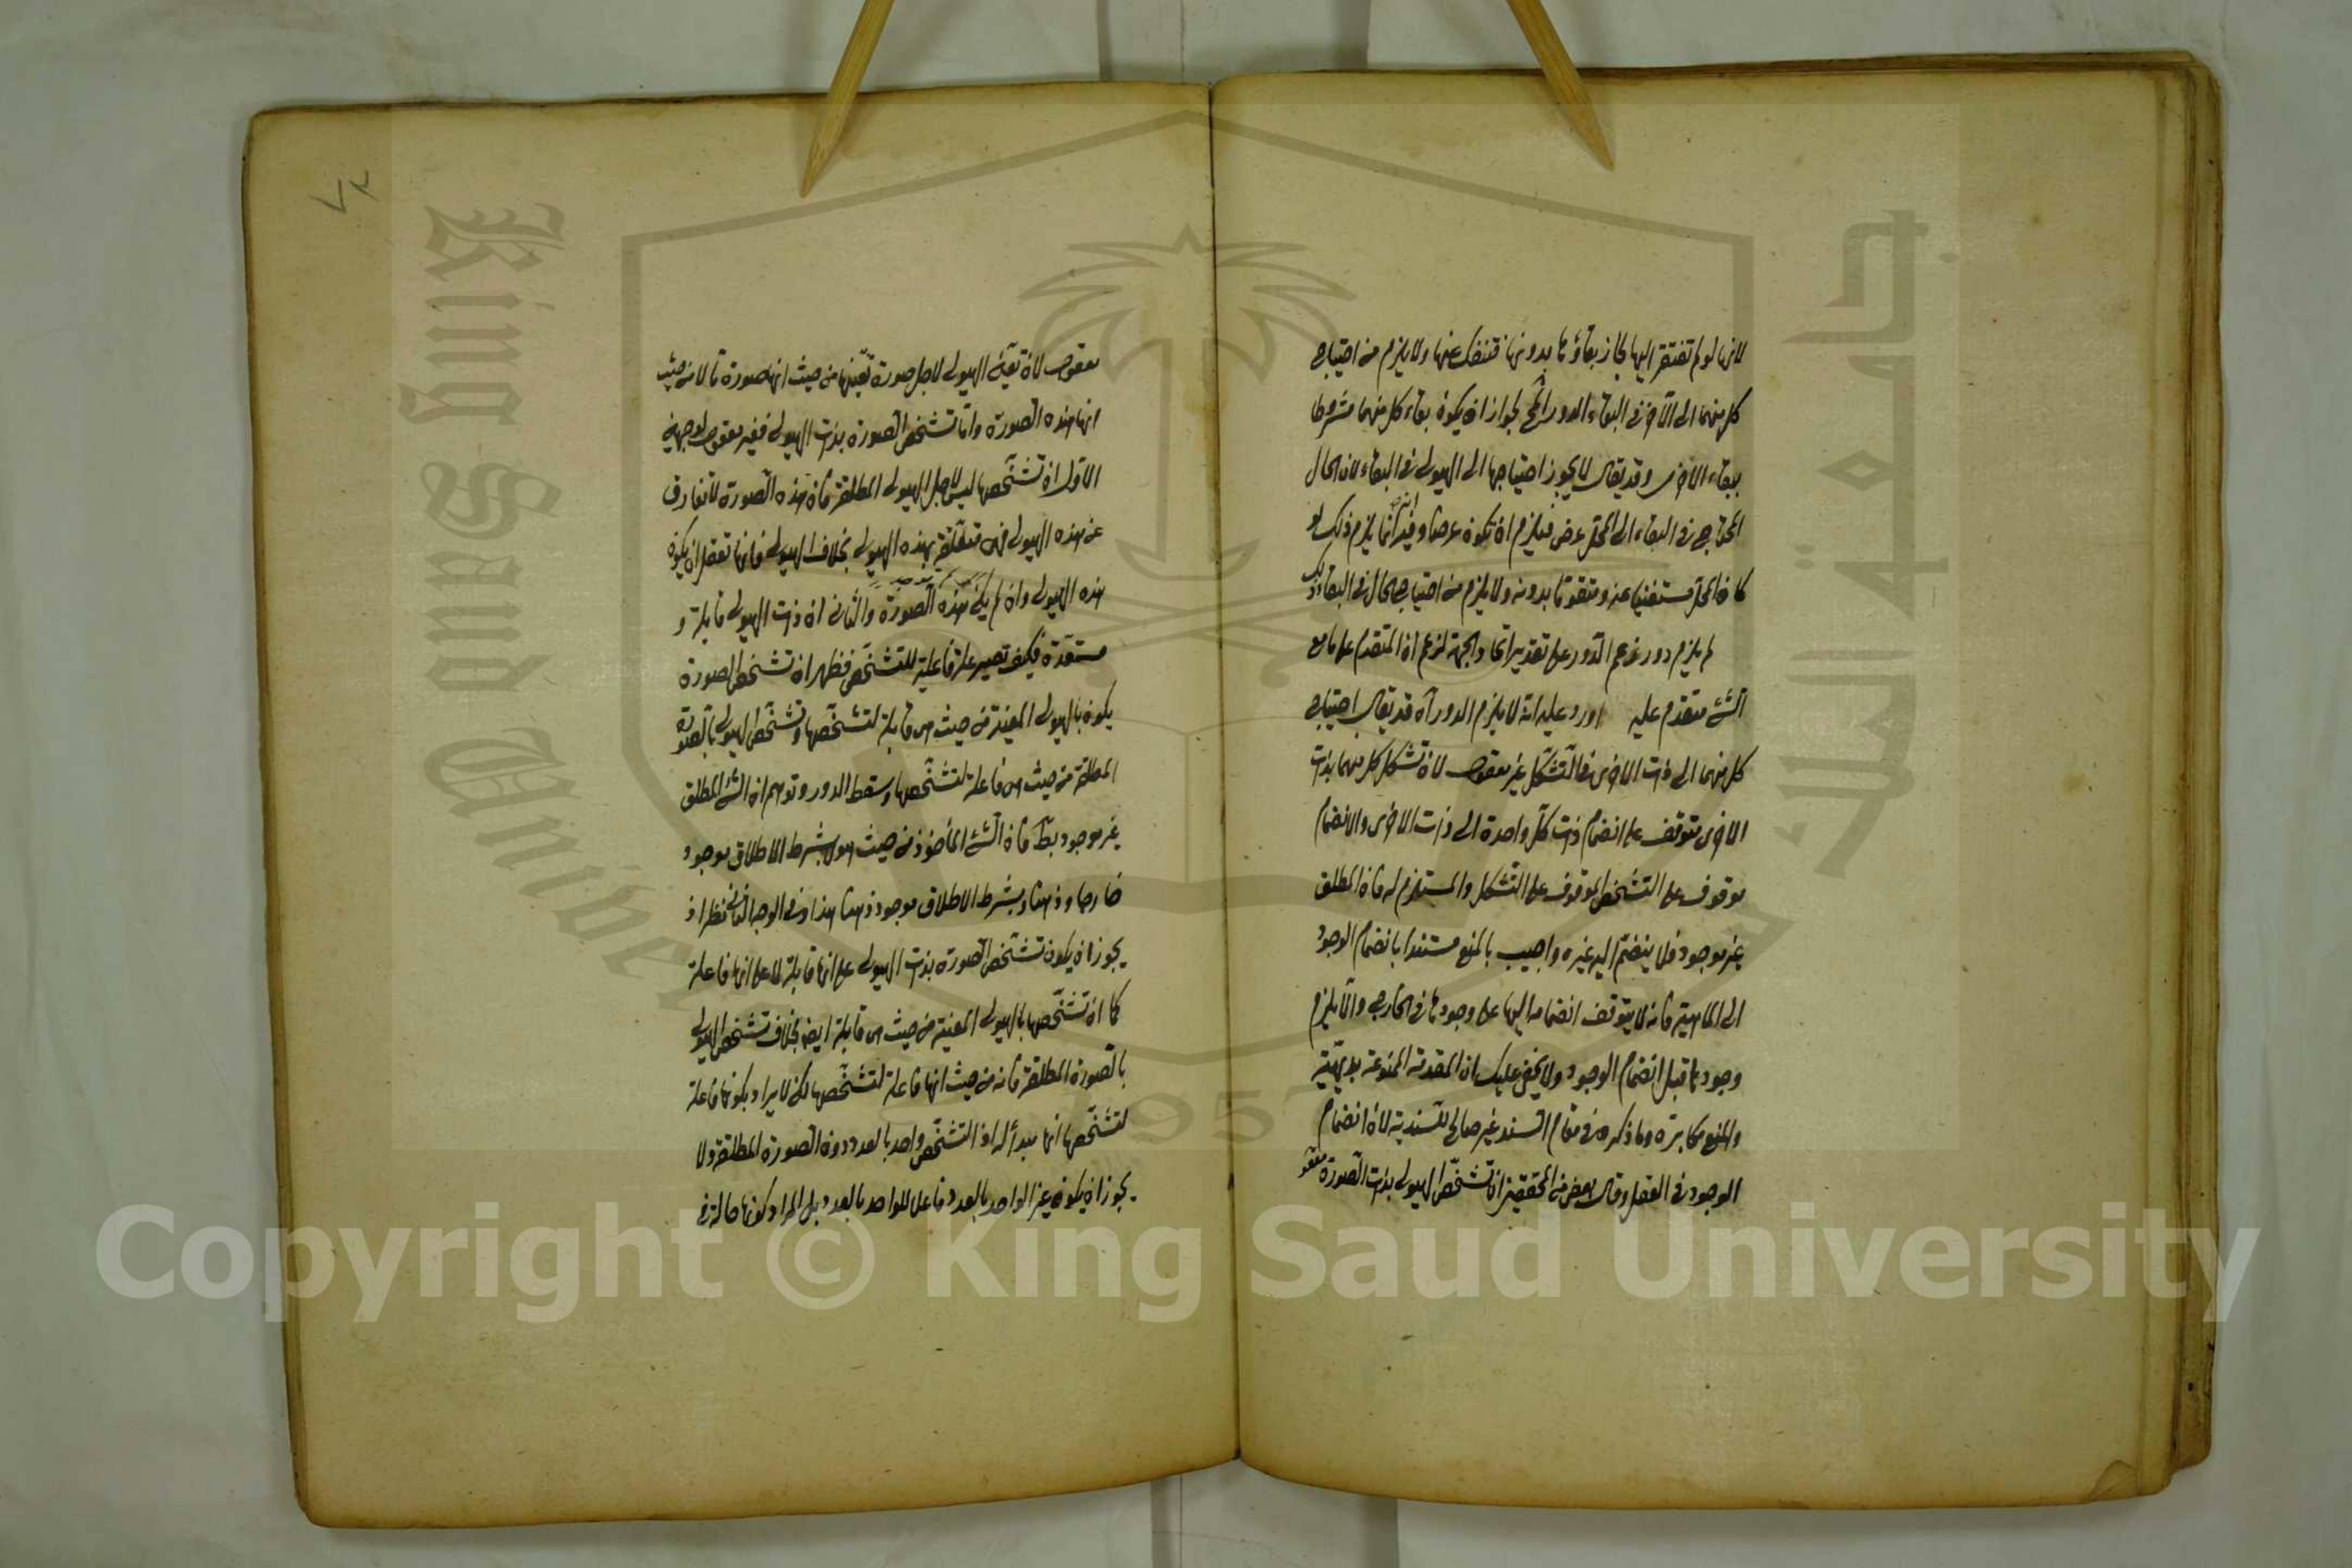 لانها لو لم تفتقر اليها لجاز بقاؤها بدونها فتنفك عنها ولا يلزم من احتياج
كل منهما الى الآخر في البقاء الدور المح لجواز ان يكون بقاء كل منهما مشروطا
ببقاء الاخرى وقد يقال لا يجوز احتياجها الى الهيولى في البقاء لان الحال
المحتاج في البقاء الى المحل عرض فيلزم ان تكون عرضا وفيه انه انما يلزم ذلك لو
كان المحل مستغنيا عنه ومتقوما بدونه ولا يلزم من احتياج الحال في البقاء ذلك
لم يلزم دور زعم الدور على تقدير اتحاد الجهة لزعم ان المتقدم على ما مع
الشئ متقدم عليه اورد عليه انه لا يلزم الدور آه قد يقال احتياج
كل منهما الى ذات الاخرى في التشكل غير معقول لان تشكل كل منهما بذات
الاخرى متوقف على انضمام ذات كل واحدة الى ذات الاخرى والانضمام
موقوف على التشخص الموقوف على التشكل والمستلزم له فان المطلق
غير موجود فلا ينضم اليه غيره واجيب بالمنع مستندا بانضمام الوجود
الى الماهية فانه لا يتوقف انضمامه اليها على وجودها في الخارج والا يلزم
وجودها قبل انضمام الوجود ولا يخفى عليك ان المقدمة الممنوعة بديهية
والمنع مكابرة وما ذكره في مقام السند غير صالح للسندية لان انضمام
الوجود في العقل وقال بعض من المحققين ان تشخص الهيولى بذات الصورة معقو
معقول لان تعين الهيولى لاجل صورة تعينها من حيث انها صورة ما لا من حيث
انها هذه الصورة واما تشخص الصورة بذات الهيولى فغير معقول لوجهين
الاول ان تشخصها ليس لاجل الهيولى المطلقة فان هذه الصورة لا تفارق
عن هذه الهيولى فهي متعلقة بهذه الهيولى بخلاف الهيولى فانها تعقل ان يكون
هذه الهيولى وان لم يكن هذه الصورة والثاني ان ذات الهيولى قابلة و
مستعدة فكيف تصير علة فاعلية للتشخص فظهر ان تشخص الصورة
يكون بالهيولى المعينة من حيث هي قابلة لتشخصها وتشخص الهيولى بالصورة
المطلقة من حيث هي فاعلة لتشخصها وسقط الدور وتوهم ان الشئ المطلق
غير موجود بط فان الشئ المأخوذ من حيث هو لا بشرط الاطلاق موجود
خارجا وذهنا وبشرط الاطلاق موجود ذهنا هذا وفي الوجه الثاني نظر اذ
يجوز ان يكون تشخص الصورة بذات الهيولى على انها قابلة لا على انها فاعلة
كما ان تشخصها بالهيولى المعينة من حيث هي قابلة ايضا بخلاف تشخص الهيولى
بالصورة المطلقة فانه من حيث انها فاعلة لتشخصها لكن لا يراد بكونها فاعلة
لتشخصها انها مبدأ له اذ التشخص واحد بالعدد دون الصورة المطلقة ولا
يجوز ان يكون غير الواحد بالعدد فاعلا للواحد بالعدد بل المراد كونها حالة في
King Saud University
1957
Copyright © King Saud University